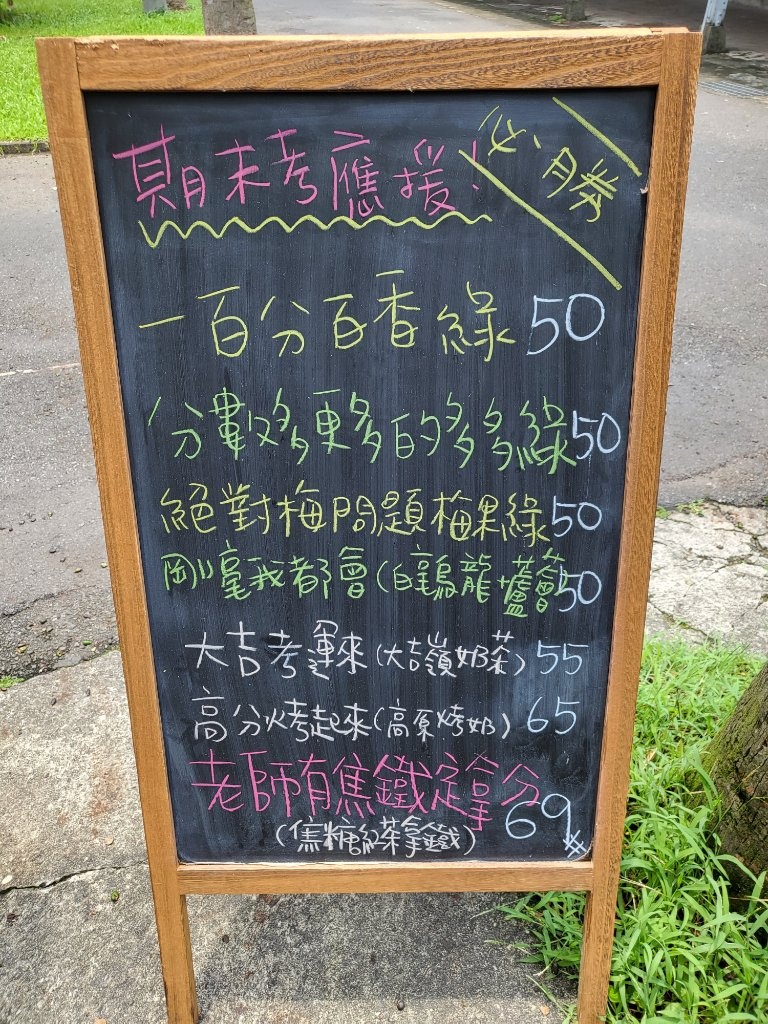 期末考應援! 必勝
一百分百香綠 50
分數多更多的多多綠 50
絕對梅問題梅果綠 50
剛毫我都會(白毫烏龍+蘆薈 50
大吉考運來(大吉嶺奶茶) 55
高分烤起來(高原烤奶) 65
老師有焦鐵定拿分
(焦糖紅茶拿鐵) 69